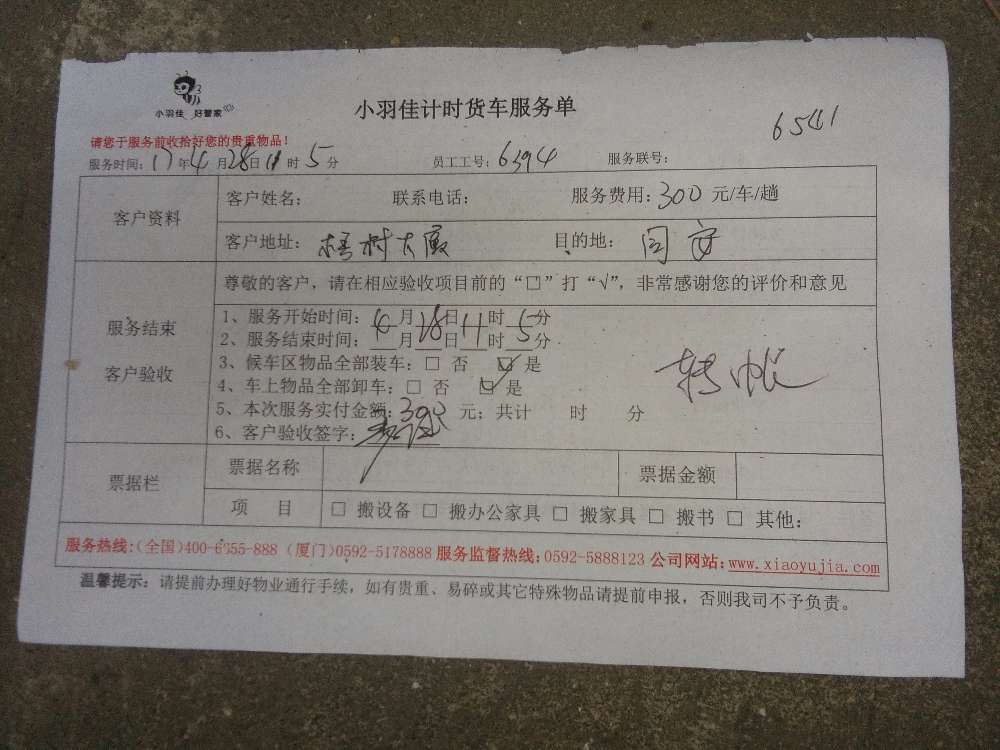 小羽佳 好管家
小羽佳计时货车服务单
6541
请您于服务前收拾好您的贵重物品！
服务时间：17年4月28日11时5分 员工工号：6394 服务联号：
客户资料
客户姓名： 联系电话： 服务费用：300元/车/趟
客户地址：梧村大厦 目的地：同安
服务结束
客户验收
尊敬的客户，请在相应验收项目前的“□”打“√”，非常感谢您的评价和意见
1、服务开始时间：4月28日11时5分
2、服务结束时间：月日时分
3、候车区物品全部装车：□ 否 ☑ 是
4、车上物品全部卸车：□ 否 ☑ 是
5、本次服务实付金额：300元；共计 时 分
6、客户验收签字：
转帐
票据栏
票据名称 票据金额
项 目 □ 搬设备 □ 搬办公家具 □ 搬家具 □ 搬书 □ 其他：
服务热线：（全国）400-6355-888（厦门）0592-5178888 服务监督热线：0592-5888123 公司网站：www.xiaoyujia.com
温馨提示：请提前办理好物业通行手续，如有贵重、易碎或其它特殊物品请提前申报，否则我司不予负责。